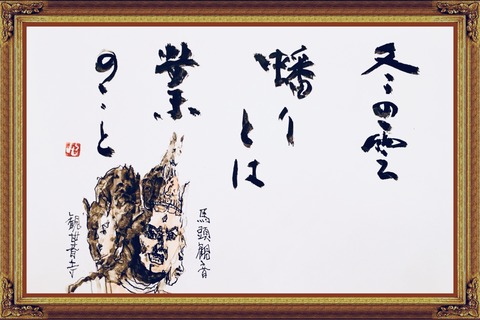 冬の雲
蟠り
とは
業
のこと
馬頭観音
観世音寺